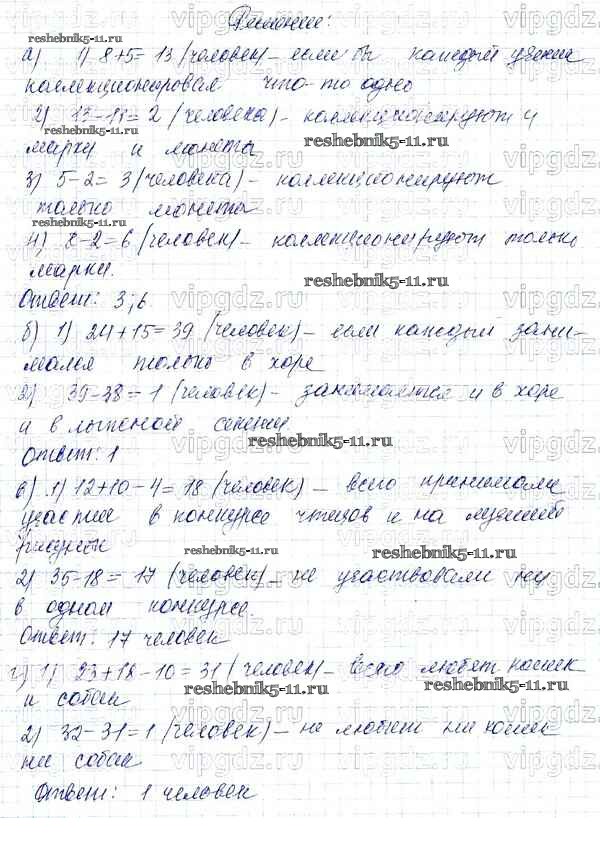 Решение:
а) 1) 8+5=13 (человек) – если бы каждый ученик
коллекционировал что-то одно
2) 13-11=2 (человека) – коллекционируют и
марки и монеты
3) 5-2=3 (человека) – коллекционируют
только монеты
4) 8-2=6 (человек) – коллекционируют только
марки.
Ответ: 3; 6.
б) 1) 24+15=39 (человек) – если каждый зани-
мался только в хоре
2) 39-38=1 (человек) – занимается и в хоре
и в лыжной секции.
Ответ: 1
в) 1) 12+10-4=18 (человек) – всего принимали
участие в конкурсе чтецов и на лучший
рисунок
2) 35-18=17 (человек) – не участвовали ни
в одном конкурсе.
Ответ: 17 человек
г) 1) 23+18-10=31 (человек) – всего любят кошек
и собак
2) 32-31=1 (человек) – не любит ни кошек
ни собак
Ответ: 1 человек
reshebnik5-11.ru
vipgdz.ru